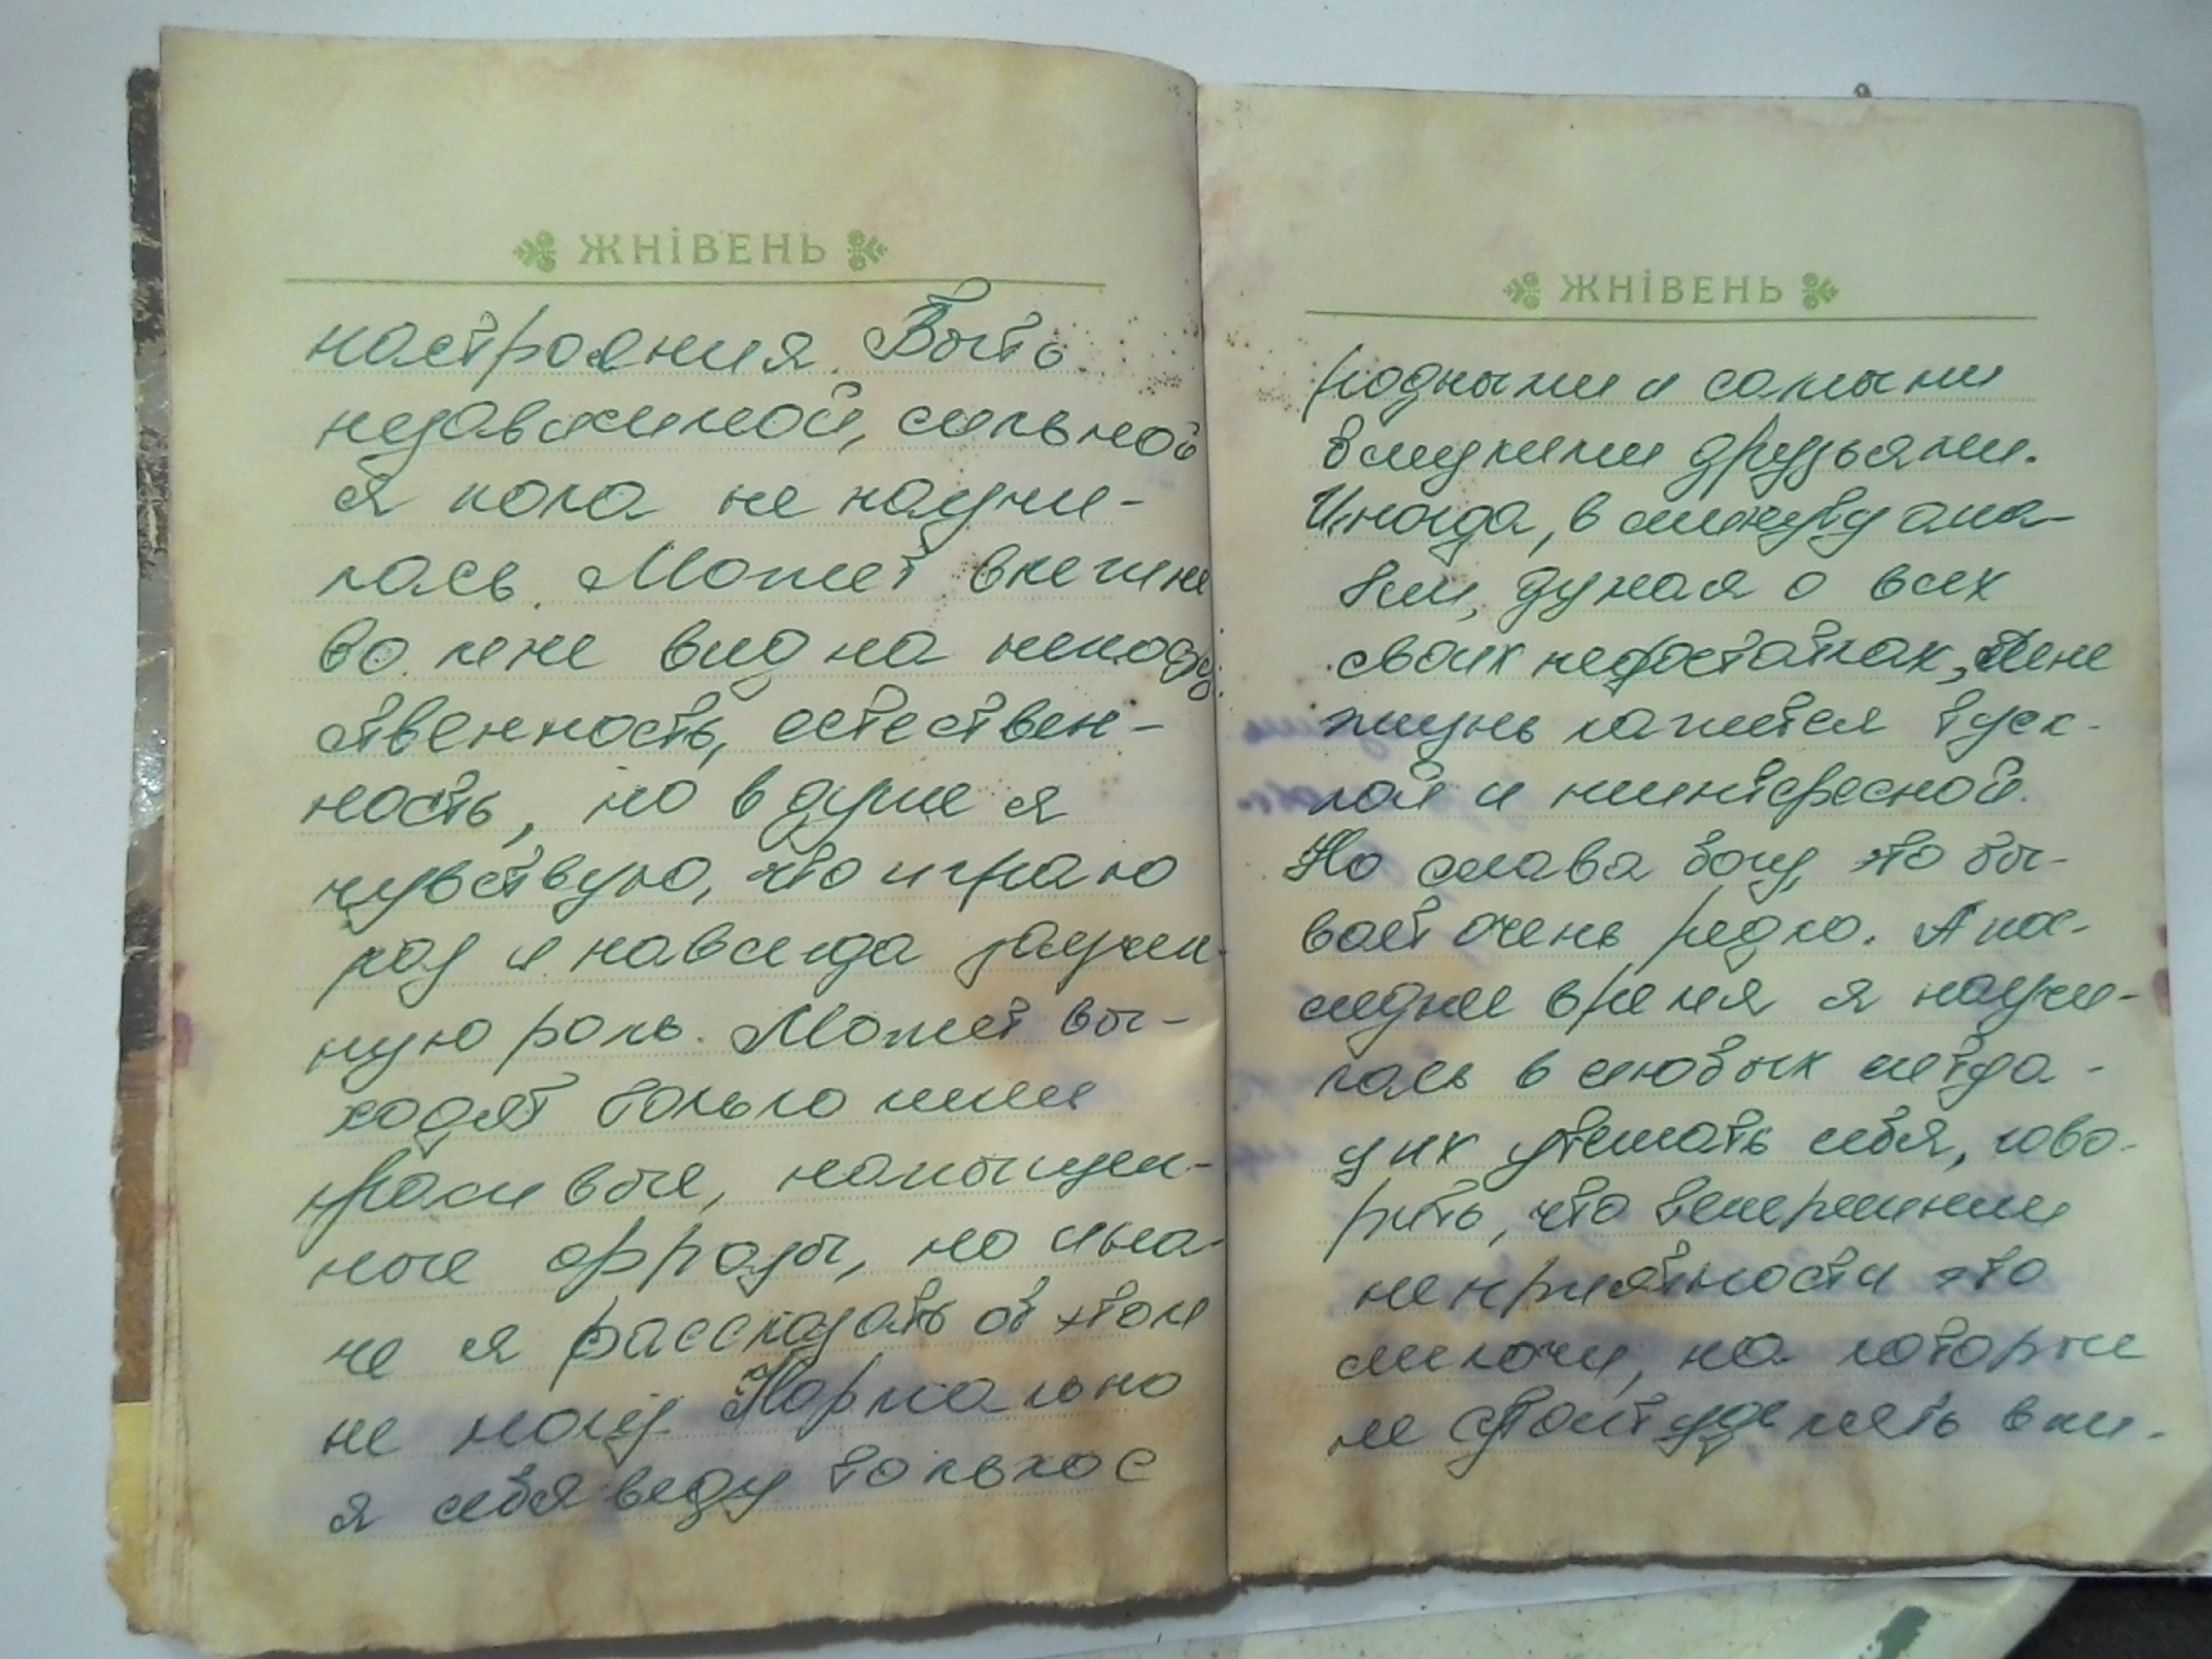 ЖНІВЕНЬ
настроения. Быть
независимой, сильной
я пока не научи-
лась. Может внешне
во мне видна непосред-
ственность, естествен-
ность, но в душе я
чувствую, что играю
раз и навсегда заучен-
ную роль. Может вы-
ходят только мои
красивые, напыщен-
ные фразы, но ина-
че я рассказать об этом
не могу. Нормально
я себя веду только с
ЖНІВЕНЬ
родными и самыми
близкими друзьями.
Иногда, в минуту сла-
бым, думая о всех
своих недостатках, мне
жизнь кажется туск-
лой и неинтересной.
Но слава богу, это бы-
вает очень редко. А пос-
леднее время я научи-
лась в любых неуда-
чих утешать себя, гово-
рить, что теперешние
неприятности это
мелочи, на которые
не стоит уделять вни-